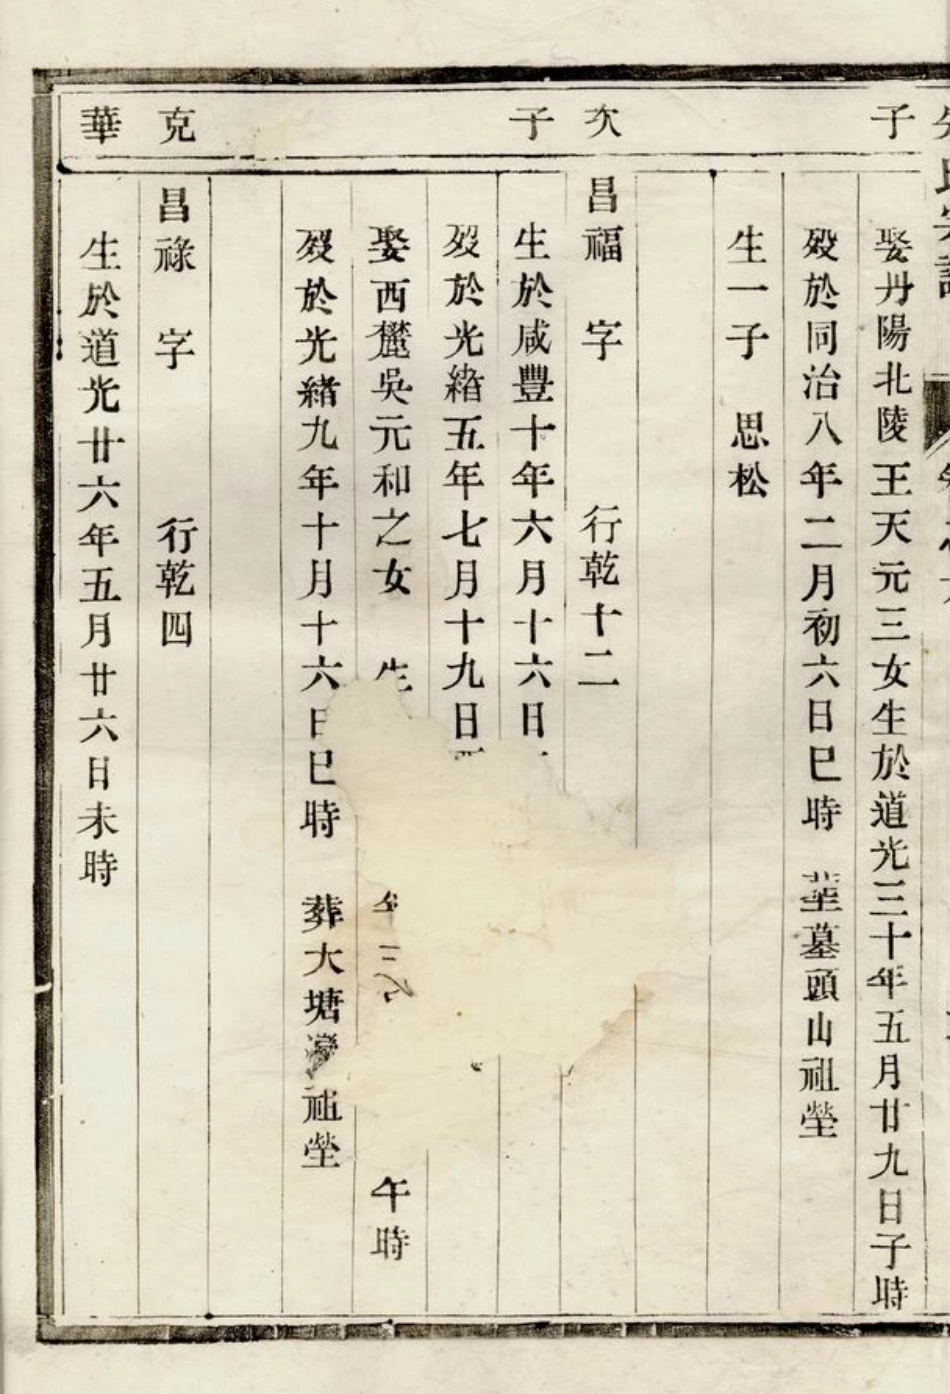 子
娶丹陽北陵王天元三女生於道光三十年五月廿九日子時
歿於同治八年二月初六日巳時 墓頭山祖塋
生一子 思松
次 昌福 字 行乾十二
子 生於咸豐十年六月十六日
歿於光緖五年七月十九日
娶西麓吳元和之女 生 午時
歿於光緖九年十月十六日巳時 葬大塘 祖塋
克 昌祿 字 行乾四
華 生於道光廿六年五月廿六日未時